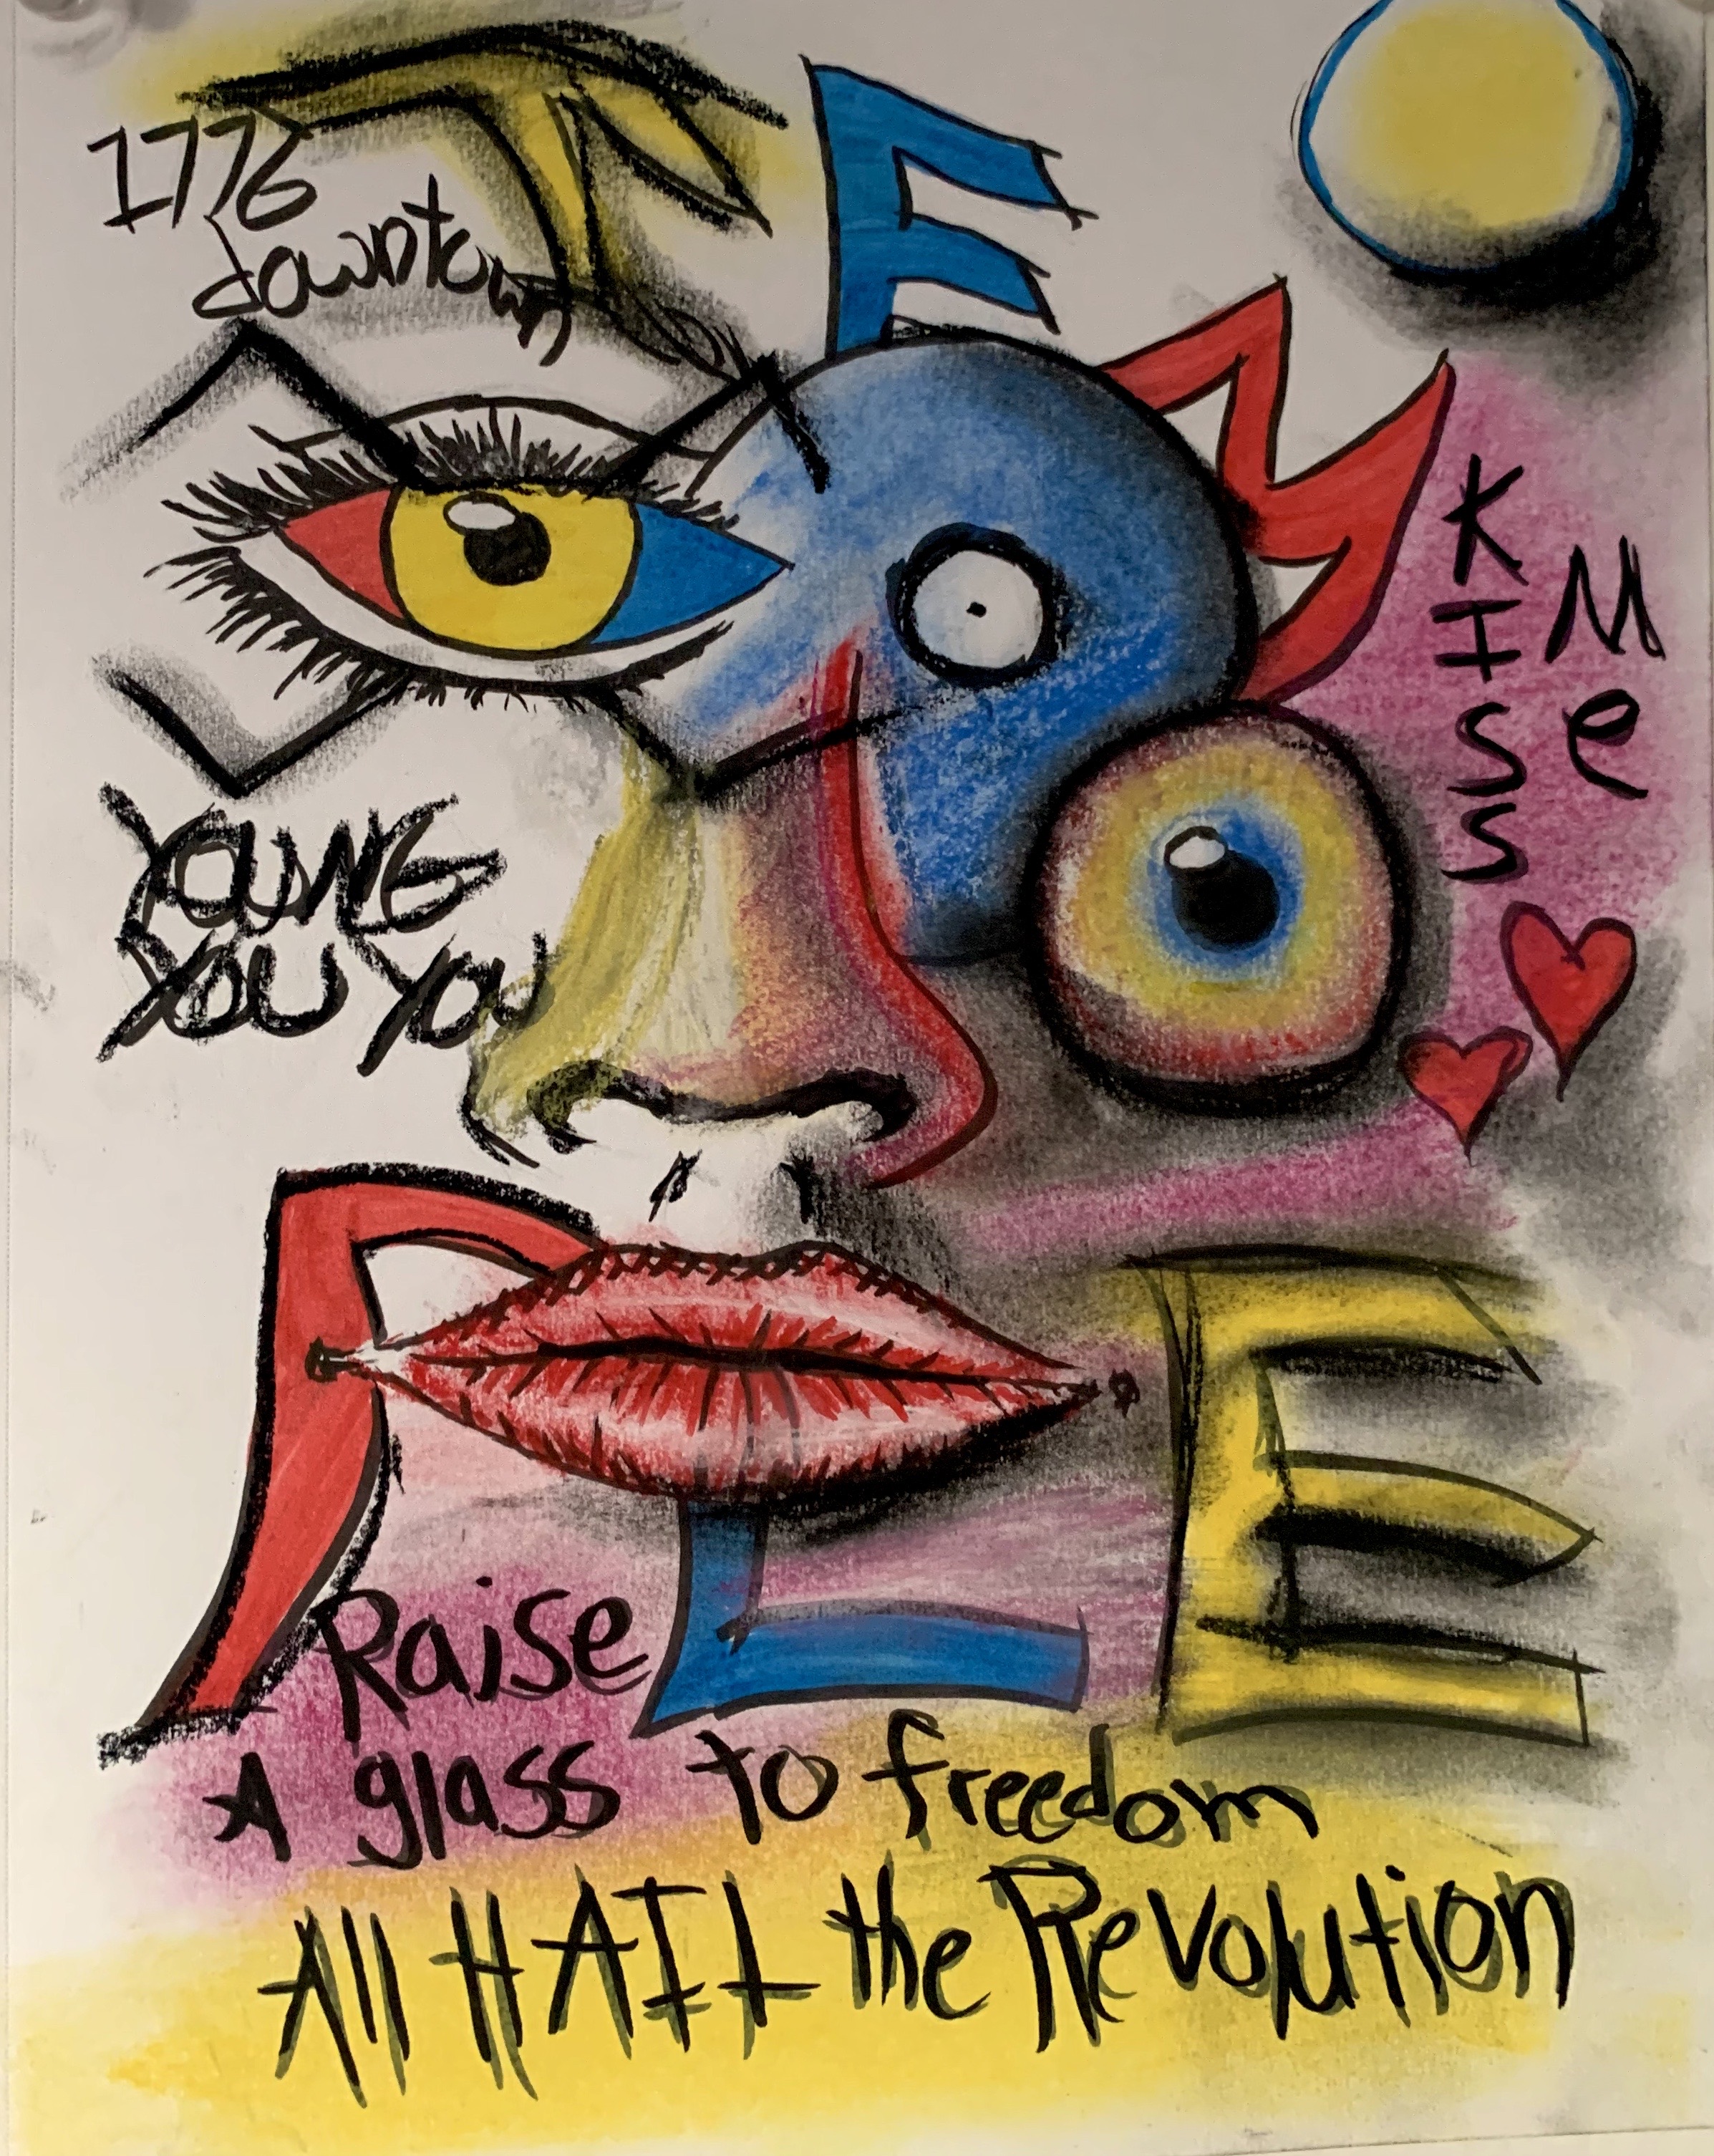 TEM
1776
downtown
KISS
Me
YOUNG
YOU YOU
PLE
Raise
A glass to freedom
All HAIL the Revolution